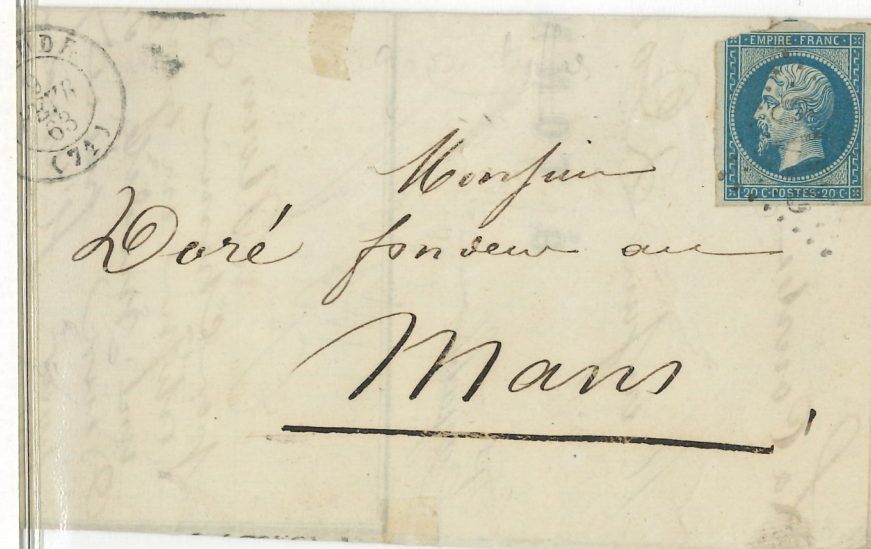 EMPIRE FRANC
20 C·POSTES·20 C
63
(72)
Monsieur
Doré fondeur au
Mans